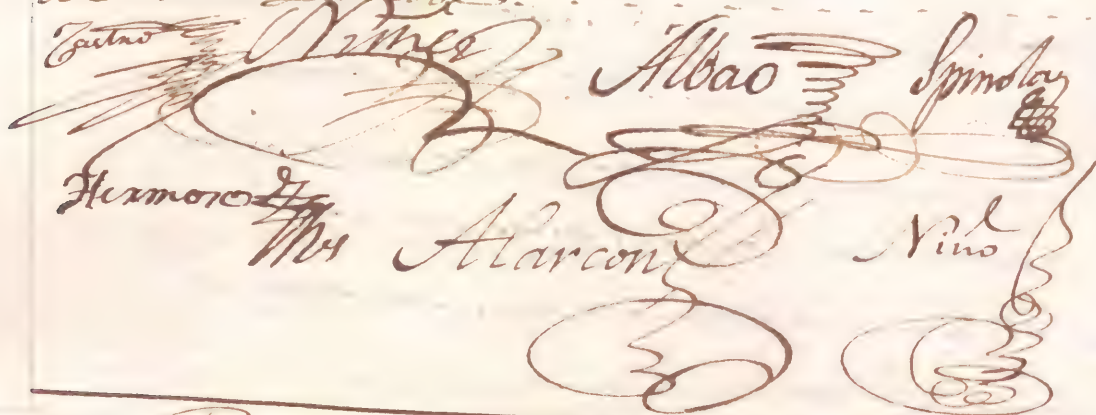 Castro Nuñes Albao Spinola
Hermoso Alarcon Niño